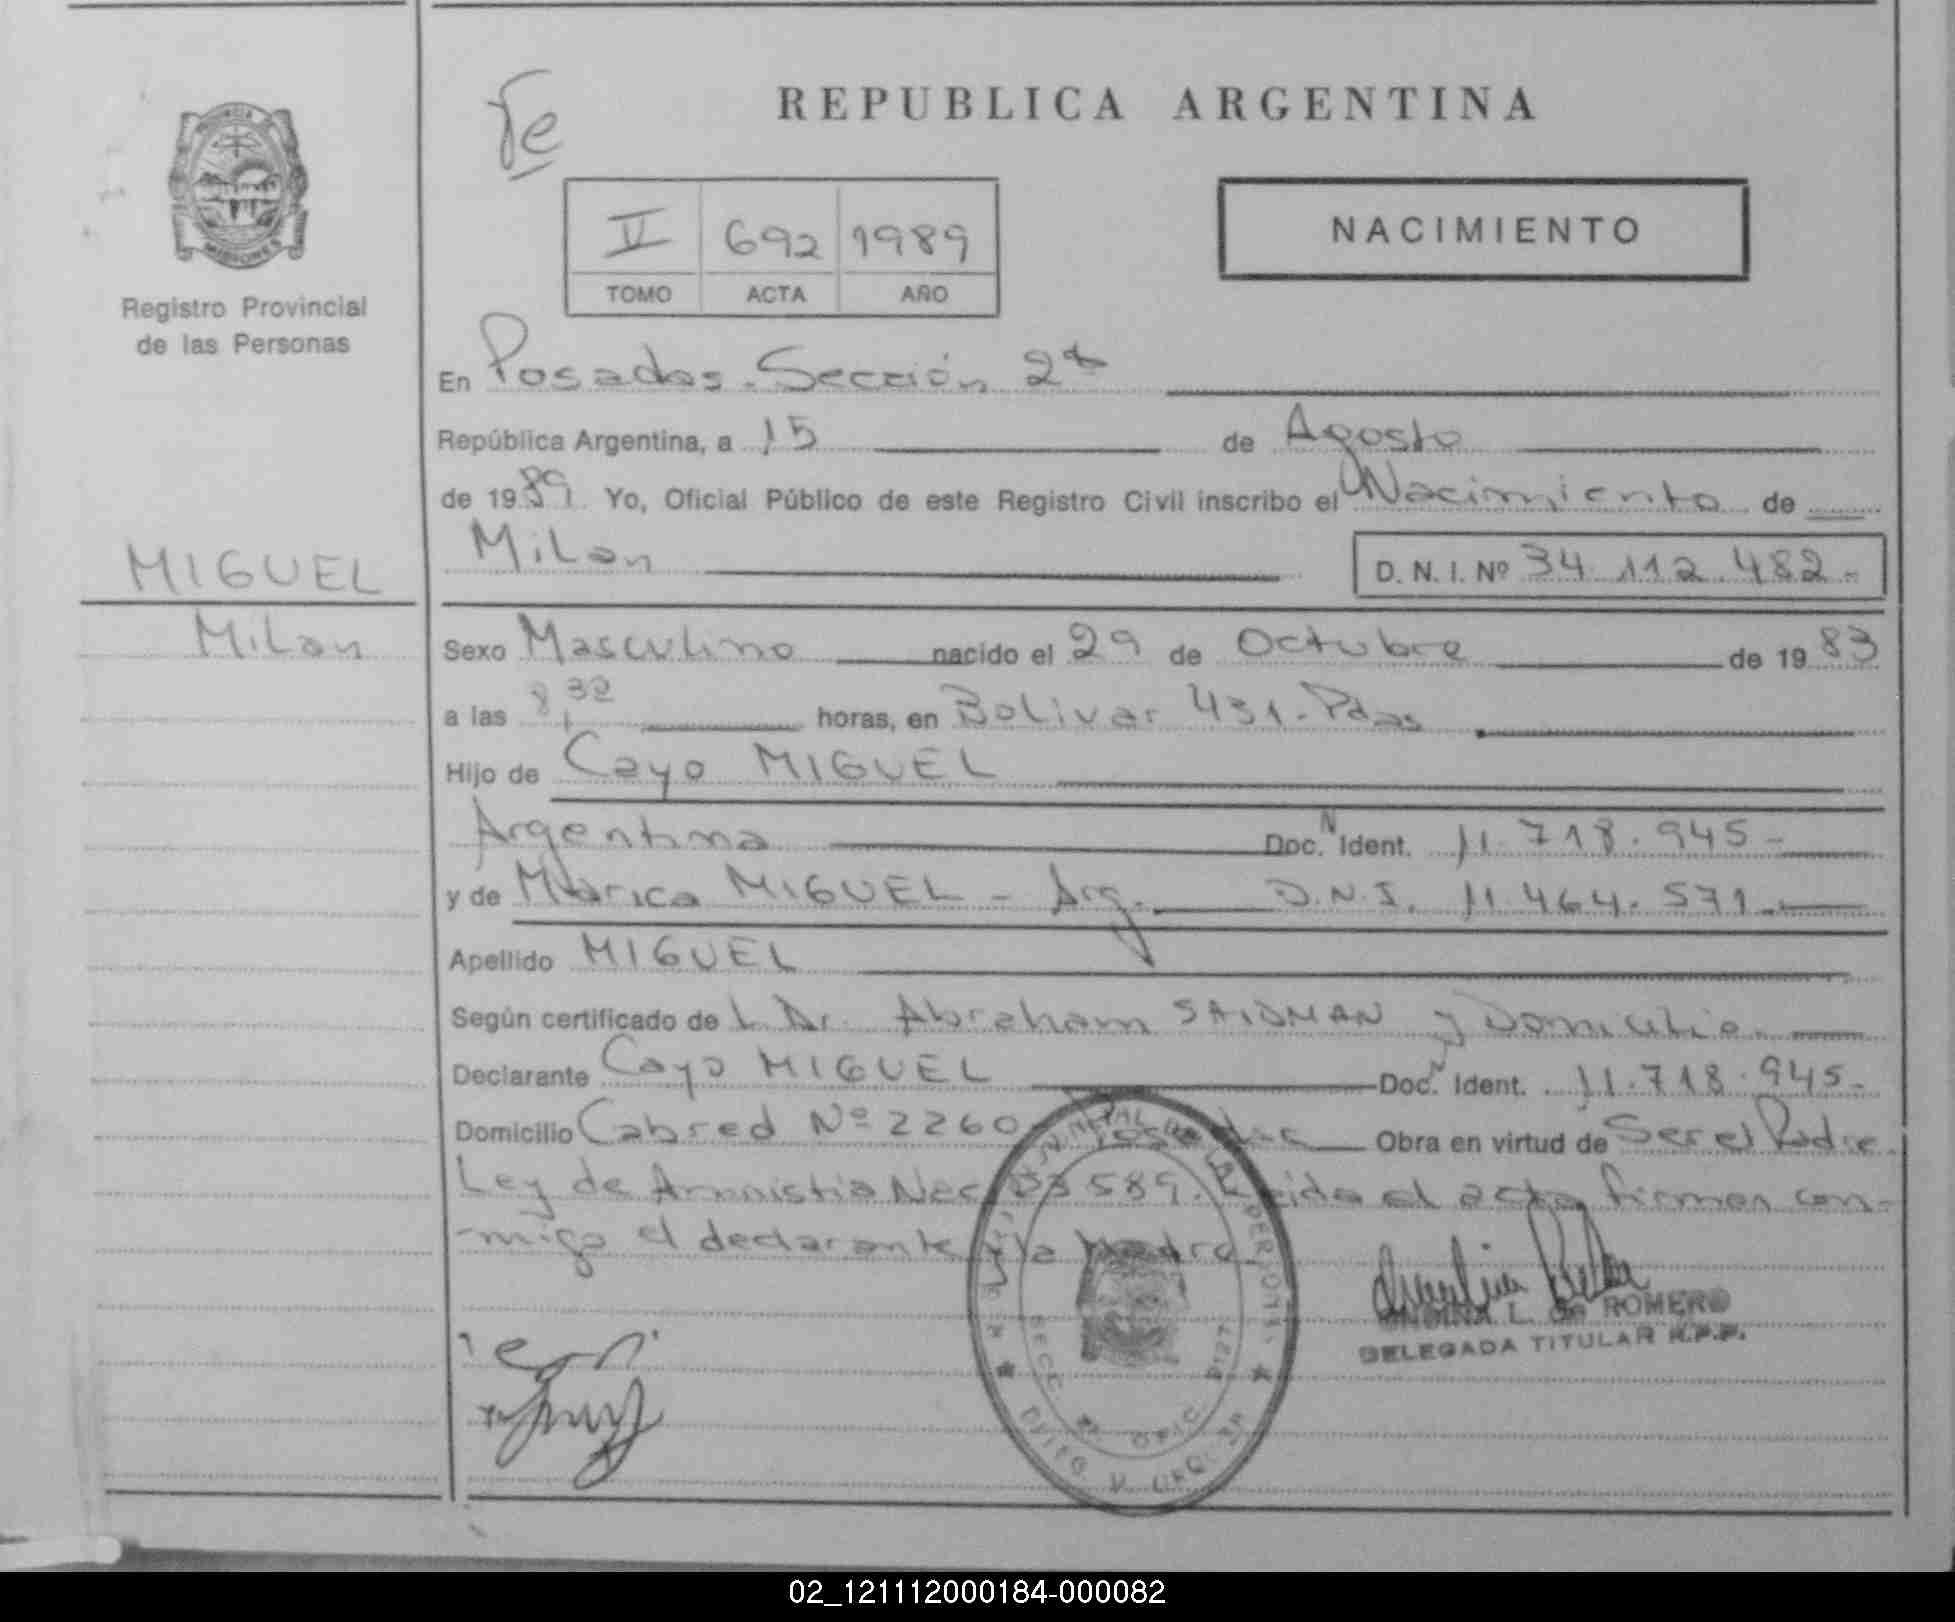 REPUBLICA ARGENTINA
NACIMIENTO
V 692 1989
TOMO ACTA AÑO
Registro Provincial
de las Personas
En Posadas. Sección 2ª
República Argentina, a 15 de Agosto
de 1989. Yo, Oficial Público de este Registro Civil inscribo el Nacimiento de
Milan D. N. I. Nº 34.112.482.-
MIGUEL
Milan
Sexo Masculino nacido el 29 de Octubre de 1983
a las 8,32 horas, en Bolivar 431. Pdas
Hijo de Cayo MIGUEL
Argentina Doc. N Ident. 11.718.945-
y de Marica MIGUEL - Arg. D.N.I. 11.464.571.-
Apellido MIGUEL
Según certificado de L Dr. Abraham SAIDMAN y Domicilio.
Declarante Cayo MIGUEL Doc. N Ident. 11.718.945-
Domicilio Cabred Nº 2260 Obra en virtud de Ser el Padre
Ley de Amnistia Nac. 23589. Leida el acta firman con-
-migo el declarante y la Madre,
L. de ROMERO
DELEGADA TITULAR R.P.P.
SECC. 2ª OFIC. DPTO.
02_121112000184-000082